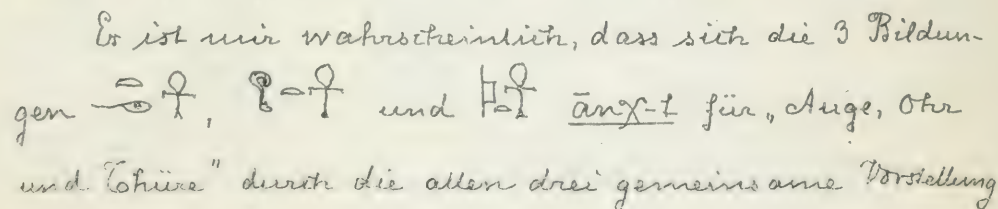 Es ist mir wahrscheinlich, dass sich die 3 Bildun-
gen 𓋹, 𓋹 und 𓋹 ānχ-t für „Auge, Ohr
und Thüre" durch die allen drei gemeinsame Vorstellung